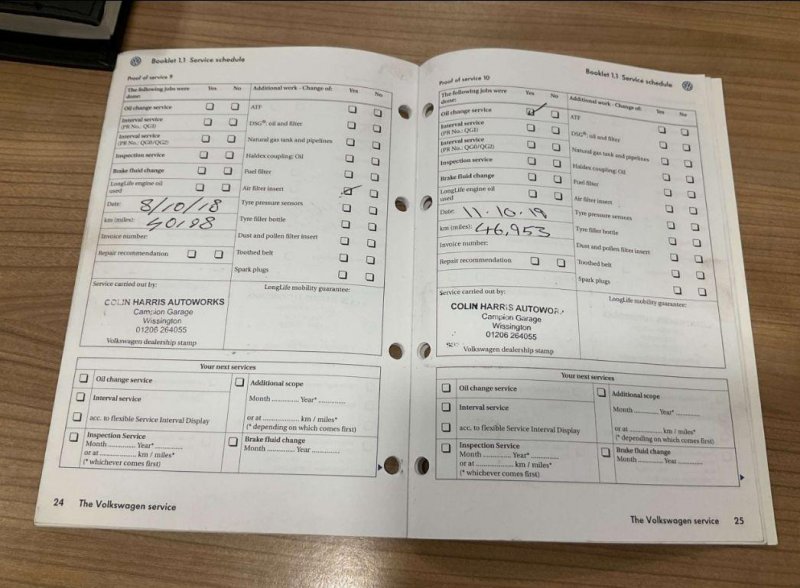 Booklet 1.1 Service schedule
Proof of service 9
The following jobs were done: Yes No Additional work - Change of: Yes No
Oil change service ATF
Interval service (PR No.: QG1) DSG®: oil and filter
Interval service (PR No.: QG0/QG2) Natural gas tank and pipelines
Inspection service Haldex coupling: Oil
Brake fluid change Fuel filter
LongLife engine oil used Air filter insert
Date: 8/10/18 Tyre pressure sensors
km (miles): 40,198 Tyre filler bottle
Invoice number: Dust and pollen filter insert
Repair recommendation Toothed belt
Spark plugs
Service carried out by: LongLife mobility guarantee:
COLIN HARRIS AUTOWORKS
Campion Garage
Wissington
01206 264055
Volkswagen dealership stamp
Your next services
Oil change service Additional scope
Interval service Month .............. Year* ..............
acc. to flexible Service Interval Display or at .............. km / miles*
(* depending on which comes first)
Inspection Service Brake fluid change
Month .......... Year* .............. Month .............. Year ..............
or at .............. km / miles*
(* whichever comes first)
24 The Volkswagen service
Booklet 1.1 Service schedule
Proof of service 10
The following jobs were done: Yes No Additional work - Change of: Yes No
Oil change service ATF
Interval service (PR No.: QG1) DSG®: oil and filter
Interval service (PR No.: QG0/QG2) Natural gas tank and pipelines
Inspection service Haldex coupling: Oil
Brake fluid change Fuel filter
LongLife engine oil used Air filter insert
Date: 11.10.19 Tyre pressure sensors
km (miles): 46,953 Tyre filler bottle
Invoice number: Dust and pollen filter insert
Repair recommendation Toothed belt
Spark plugs
Service carried out by: LongLife mobility guarantee:
COLIN HARRIS AUTOWOR
Campion Garage
Wissington
01206 264055
Volkswagen dealership stamp
Your next services
Oil change service Additional scope
Interval service Month .............. Year* ..............
acc. to flexible Service Interval Display or at .............. km / miles*
(* depending on which comes first)
Inspection Service Brake fluid change
Month .......... Year* .............. Month .............. Year ..............
or at .............. km / miles*
(* whichever comes first)
The Volkswagen service 25